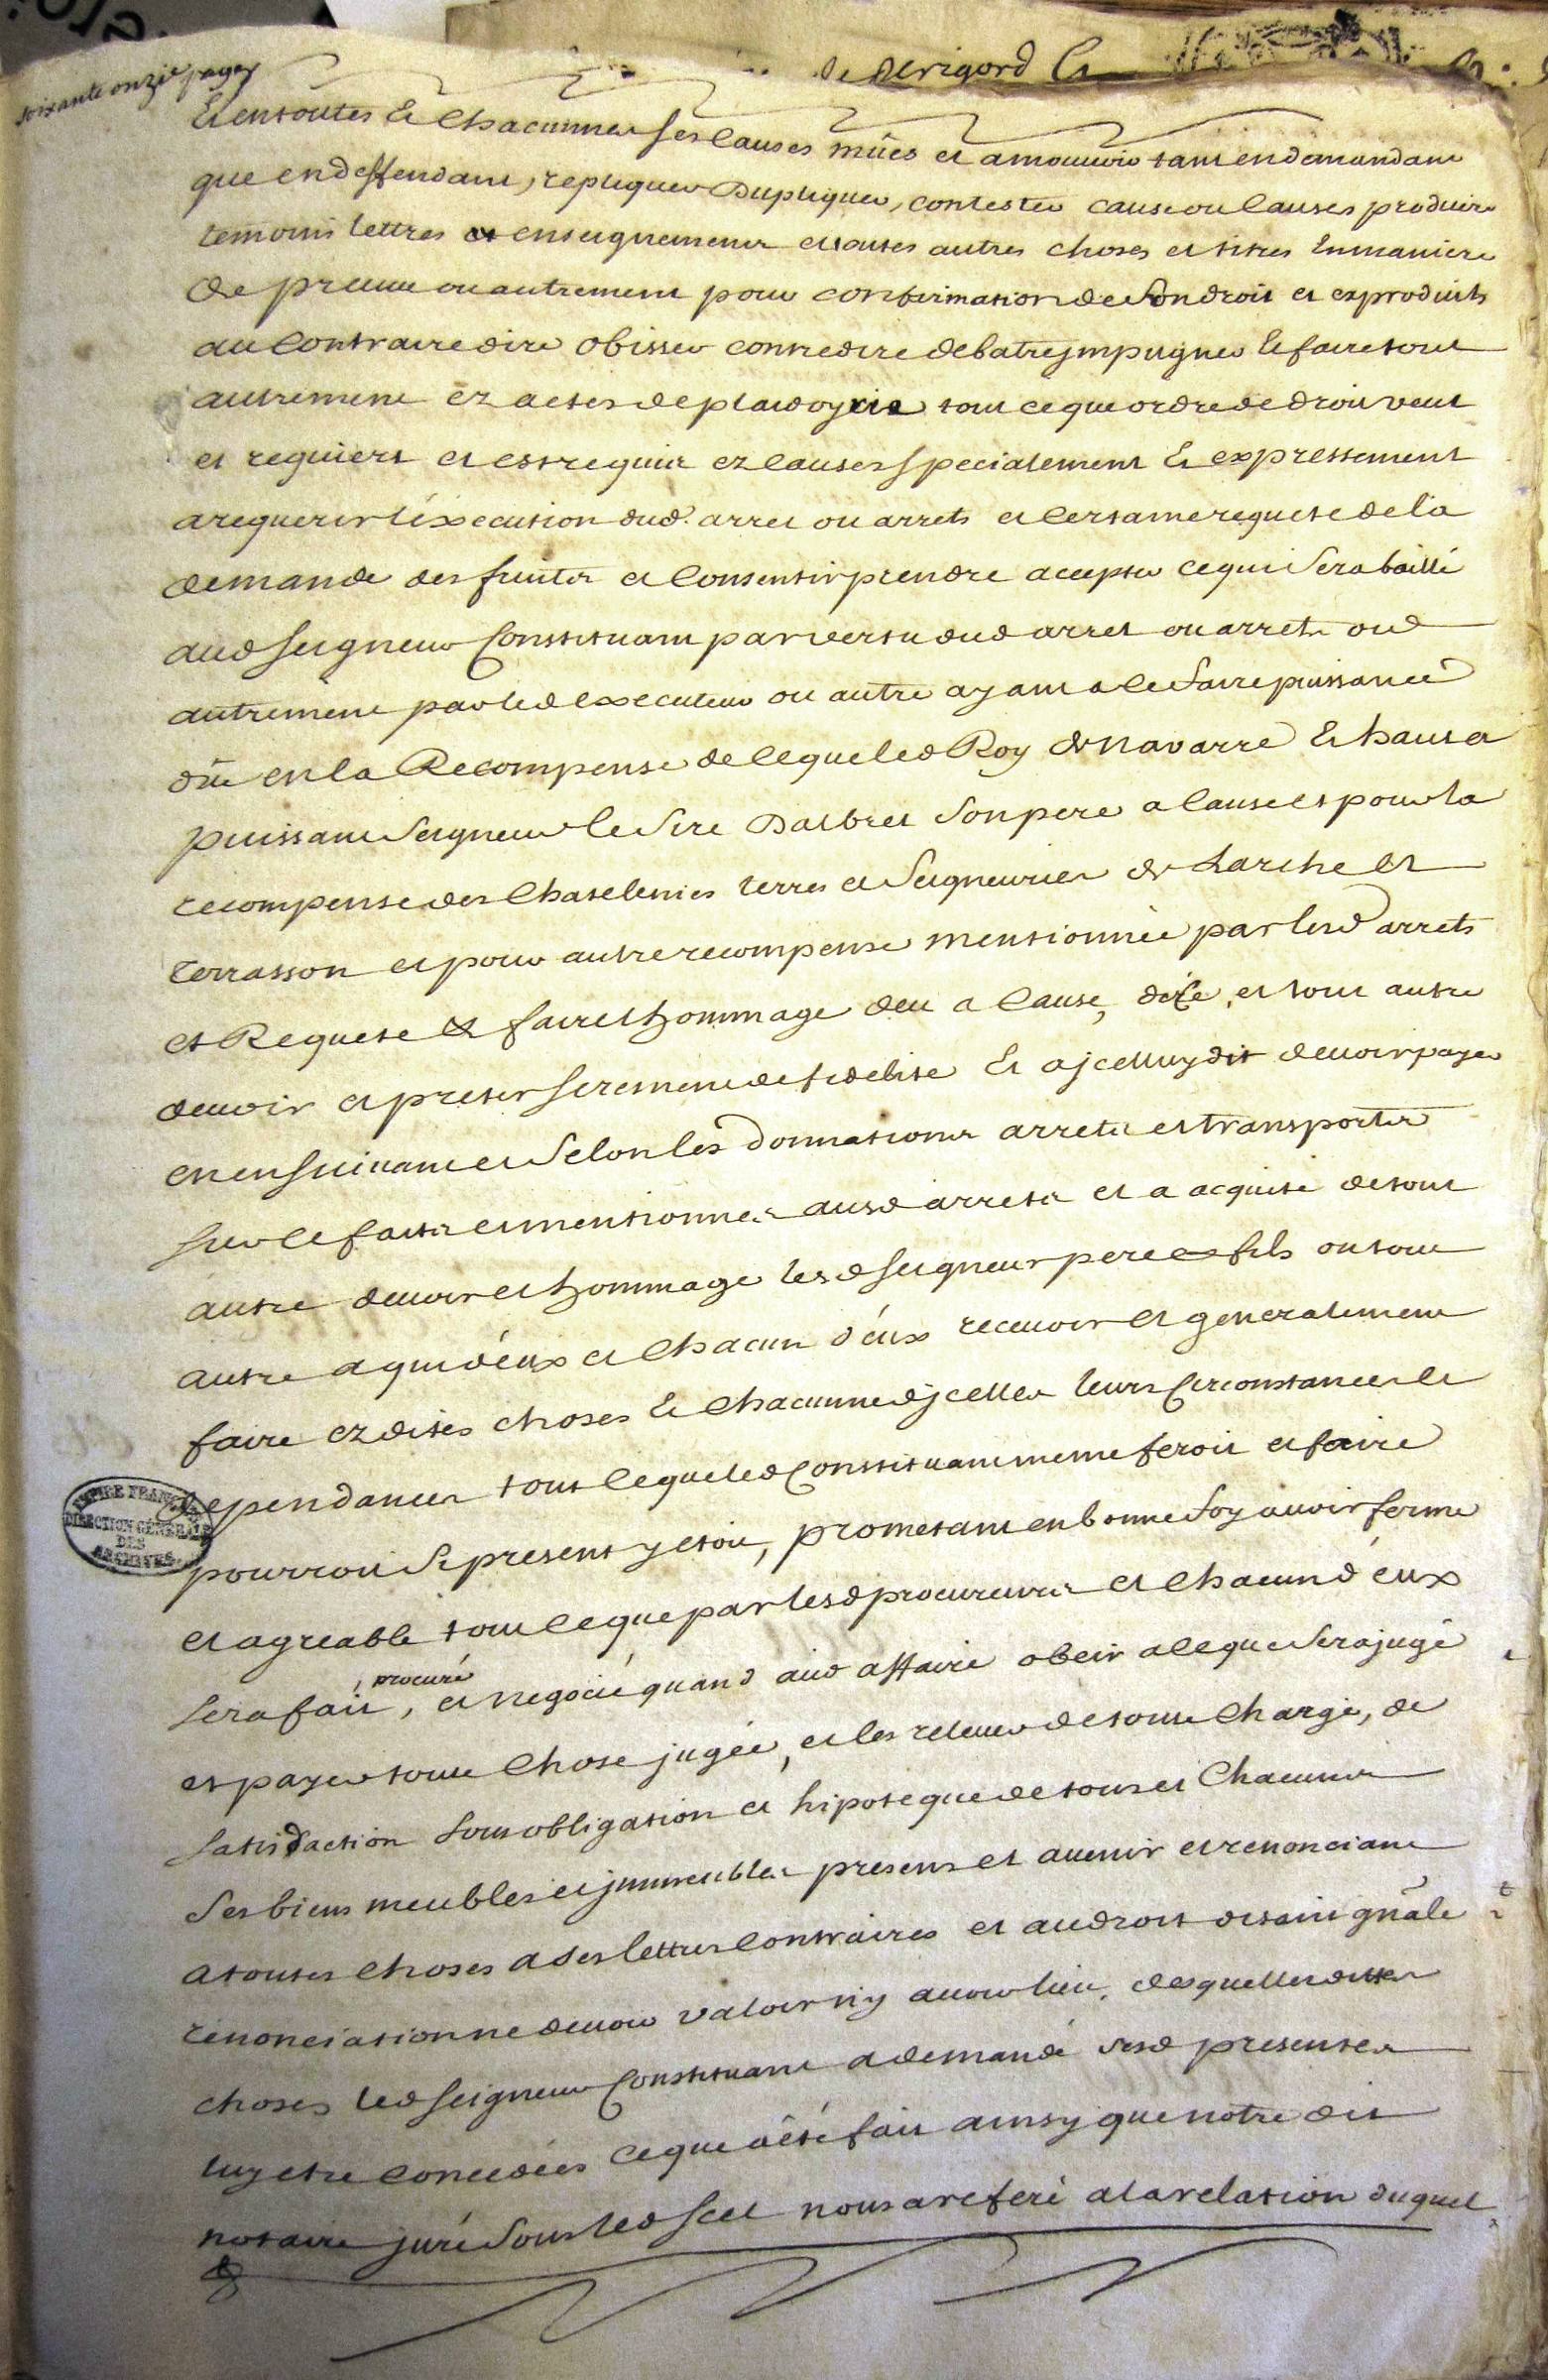 soixante onzie pages
de Perigord Et
Et en toutes Et Chacunnes ses Causes mües et amouvoir tant en demandant
que en deffendant, repliquer Dupliquer, contester cause ou Causes produire
temoins lettres et enseignements et toutes autres choses et titres En maniere
de preuve ou autrement pour confirmation de son droit et exproduits
au Contraire dire obisser contredire debatre jmpugner Et faire tout
autrement ez actes de plaidoyrie tout ce que ordre de droit veut
et requiert et est requis ez Causes specialement Et expressement
a requerir l'éxecution dud. arret ou arrets et Certaine requete de la
demande des fruits et Consentir prendre accepter ce qui sera baillé
aud seigneur Constituant par vertu dud arret ou arrets oud
autrement par led executeur ou autre ayant a ce faire puissance
due en la Recompense de ce que led Roy de Navarre Et haut et
puissant seigneur le sire Dalbret son pere a Cause et pour la
recompense des Chatelenies terres et seigneuries de Larche Et
terrasson et pour autre recompense mentionnée par lesd arrets
et Requete Et faire l'hommage deu a Cause, dice, et tout autre
devoir et preter serement de fidelité Et a jcelluy dit devoir payer
en ensuivant et selon les donnations arrets et transports
sur ce faits et mentionnes ausd arrets et a acquité de tout
autre devoir et hommage lesd seigneur pere et fils ou tout
autre a qui d'eux et Chacun d'éux recevoir et generalement
faire ez dites choses Et Chacunne d'jcelles leurs Circonstances Et
dependances tout ce que led Constituant meme feroit et faire
pourroit si present y etoit, prometant en bonne foy avoir ferme
et agreable tout ce que par lesd procureurs et Chacun d'éux
, procuré
sera fait, et negocié quand aud affaire obeir a ce que sera jugé
et payer toute Chose jugée, et les relever de toute Charge, de
satisdaction sous obligation et hipoteque de tous et Chacuns
ses biens meubles et jmmeubles presens et avenir et renonciant
a toutes choses a des lettres Contraires et au droit disant gnãle
renonciation ne devoir valoir ny avoir lieu, desquelles dites
choses led seigneur Constituant a demandé sesd presentes
luy etre Concedées Ce que a été fait ainsy que notre dit
notaire juré sous led scel nous a referé a la relation duquel
EMPIRE FRANÇAIS
DIRECTION GÉNÉRALE
DES
ARCHIVES